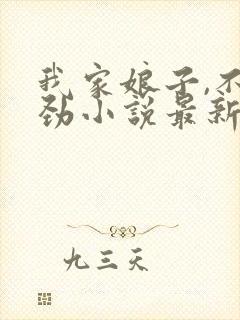 我家娘子,不
劲小说最新
九三天